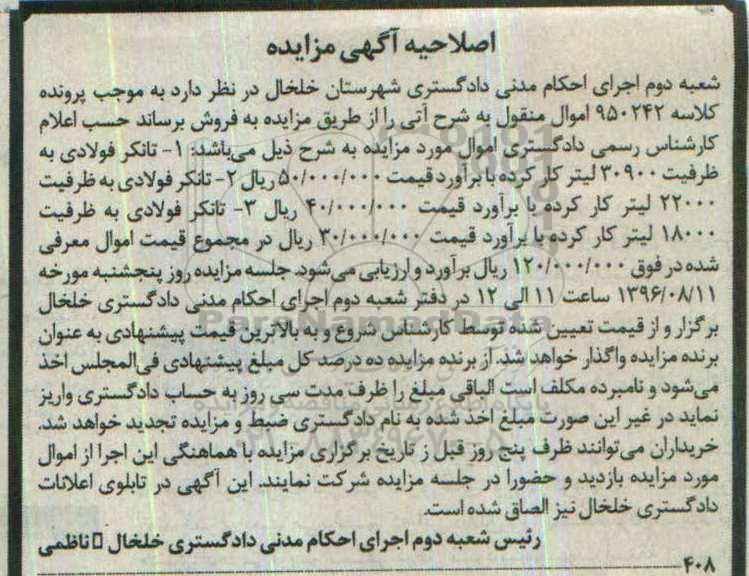 اصلاحیه آگهی مزایده
شعبه دوم اجرای احکام مدنی دادگستری شهرستان خلخال در نظر دارد به موجب پرونده
کلاسه ۹۵۰۲۴۲ اموال منقول به شرح آتی را از طریق مزایده به فروش برساند حسب اعلام
کارشناس رسمی دادگستری اموال مورد مزایده به شرح ذیل می‌باشد: ۱- تانکر فولادی به
ظرفیت ۳۰۹۰۰ لیتر کار کرده با برآورد قیمت ۵۰/۰۰۰/۰۰۰ ریال ۲- تانکر فولادی به ظرفیت
۲۲۰۰۰ لیتر کار کرده با برآورد قیمت ۴۰/۰۰۰/۰۰۰ ریال ۳- تانکر فولادی به ظرفیت
۱۸۰۰۰ لیتر کار کرده با برآورد قیمت ۳۰/۰۰۰/۰۰۰ ریال در مجموع قیمت اموال معرفی
شده در فوق ۱۲۰/۰۰۰/۰۰۰ ریال برآورد و ارزیابی می‌شود. جلسه مزایده روز پنجشنبه مورخه
۱۳۹۶/۰۸/۱۱ ساعت ۱۱ الی ۱۲ در دفتر شعبه دوم اجرای احکام مدنی دادگستری خلخال
برگزار و از قیمت تعیین شده توسط کارشناس شروع و به بالاترین قیمت پیشنهادی به عنوان
برنده مزایده واگذار خواهد شد. از برنده مزایده ده درصد کل مبلغ پیشنهادی فی‌المجلس اخذ
می‌شود و نامبرده مکلف است الباقی مبلغ را ظرف مدت سی روز به حساب دادگستری واریز
نماید در غیر این صورت مبلغ اخذ شده به نام دادگستری ضبط و مزایده تجدید خواهد شد.
خریداران می‌توانند ظرف پنج روز قبل ز تاریخ برگزاری مزایده با هماهنگی این اجرا از اموال
مورد مزایده بازدید و حضورا در جلسه مزایده شرکت نمایند. این آگهی در تابلوی اعلانات
دادگستری خلخال نیز الصاق شده است.
رئیس شعبه دوم اجرای احکام مدنی دادگستری خلخال □ ناظمی
۴۰۸
ParsNamadData